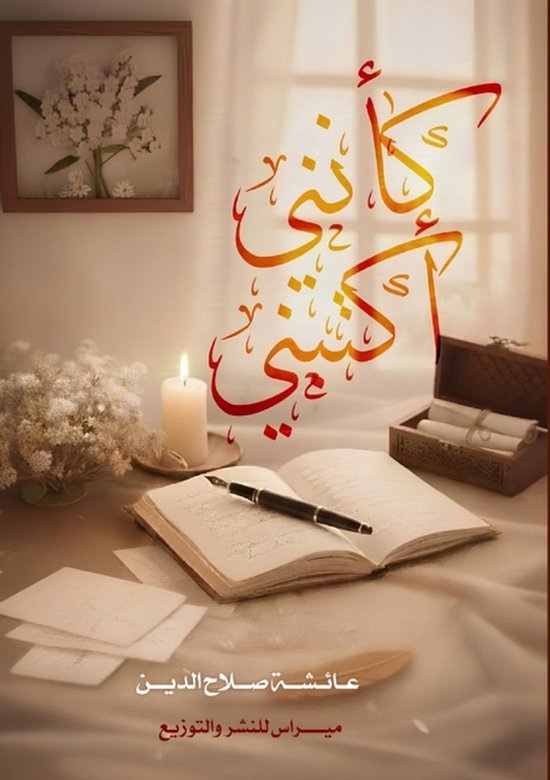 كأنني
أكتبني
عائشة صلاح الدين
ميراس للنشر والتوزيع